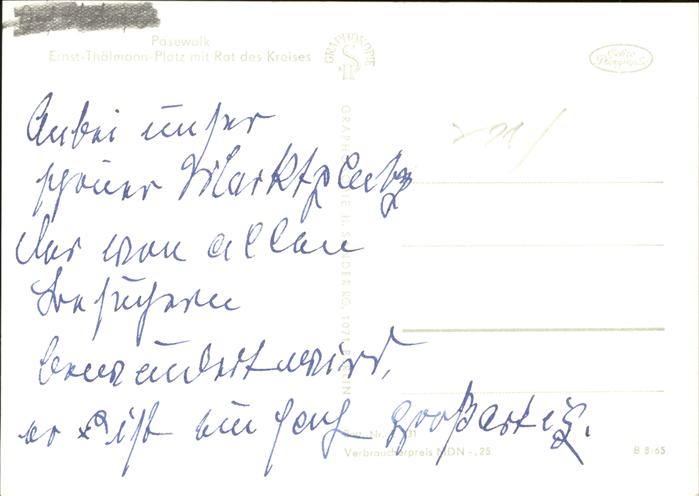 Pasewalk
Ernst-Thälmann-Platz mit Rat des Kreises
GRAPHOKOPIE
Echte Photographie
Anbei unser
schöner Marktplatz
der von allen
Besuchern
bewundert wird,
er ist einfach großartig.
Verbraucherpreis MDN -.25
B 8/65